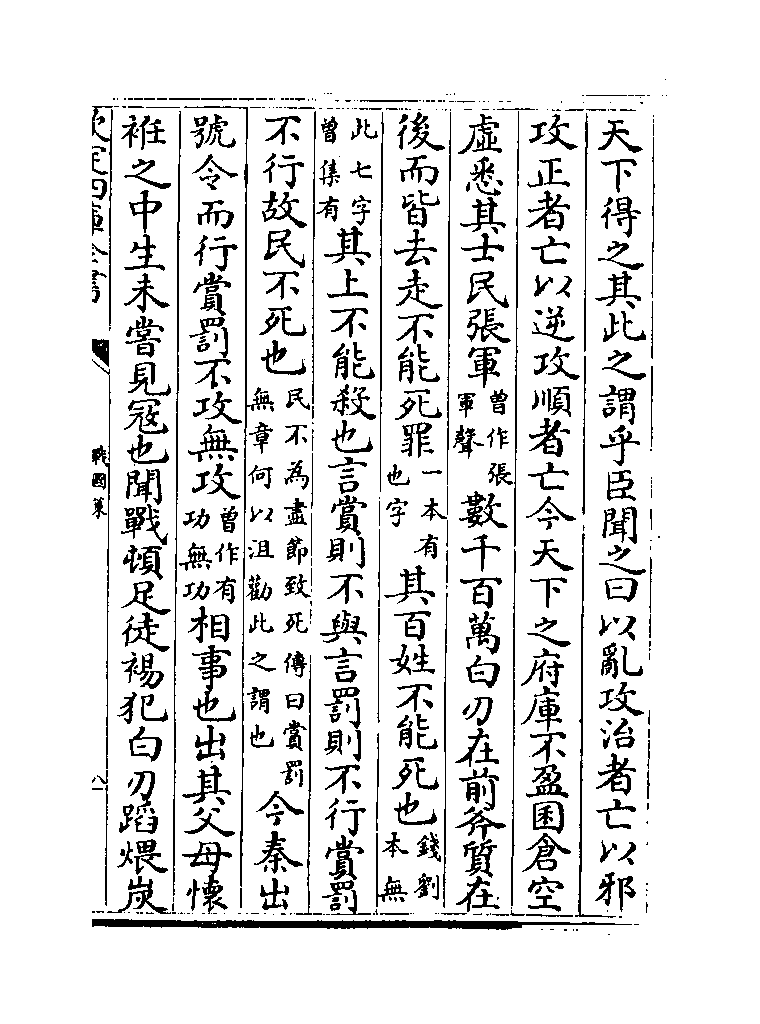 天下得之其此之謂乎臣聞之曰以亂攻治者亡以邪
攻正者亡以逆攻順者亡今天下之府庫不盈囷倉空
虛悉其士民張軍曾作張軍聲數千百萬白刃在前斧質在
後而皆去走不能死罪一本有也字其百姓不能死也錢劉本無
此七字曾集有其上不能殺也言賞則不與言罰則不行賞罰
不行故民不死也民不為盡節致死傳曰賞罰無章何以沮勸此之謂也今秦出
號令而行賞罰不攻無攻曾作有功無功相事也出其父母懷
袵之中生未嘗見冦也聞戰頓足徒裼犯白刃蹈煨炭
欽定四庫全書
戰國策
八